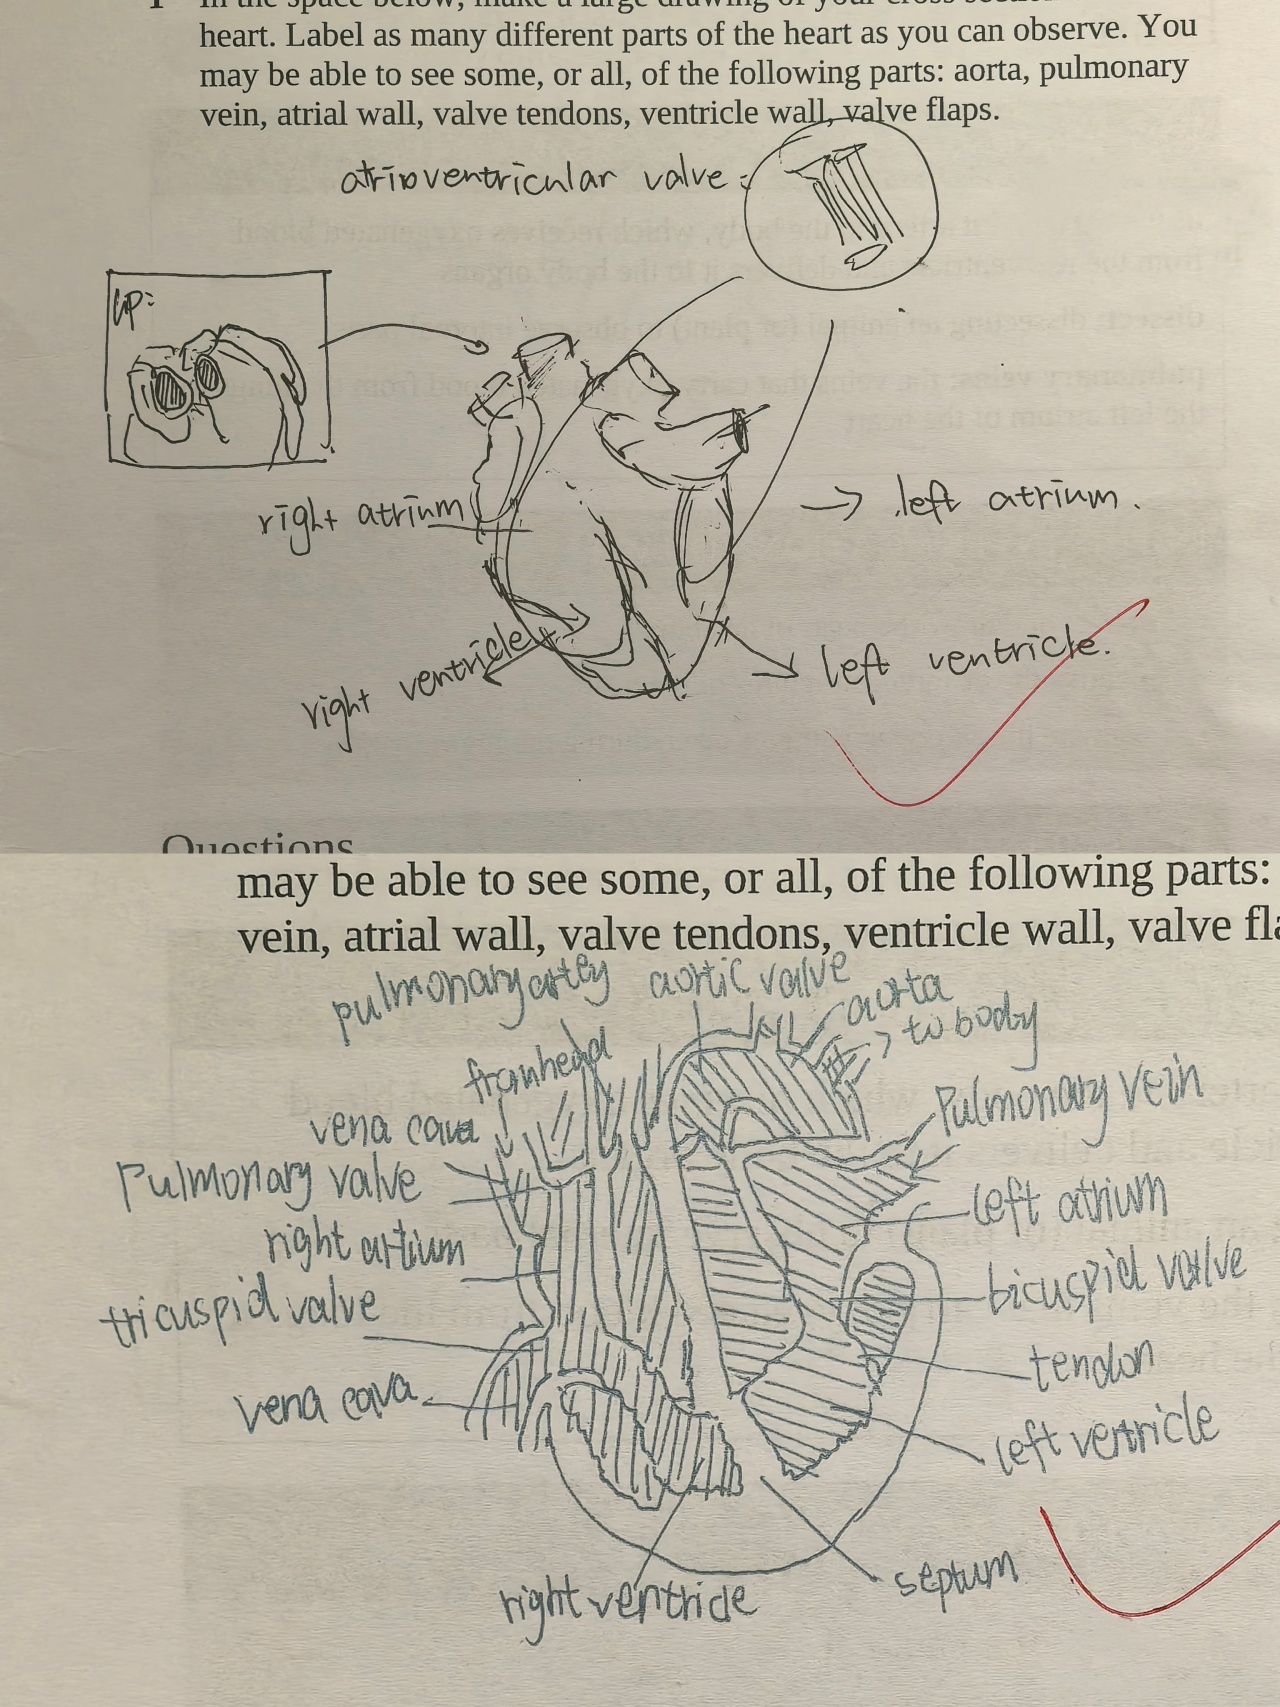 In the space below, make a large drawing of your cross section
heart. Label as many different parts of the heart as you can observe. You
may be able to see some, or all, of the following parts: aorta, pulmonary
vein, atrial wall, valve tendons, ventricle wall, valve flaps.
atrioventricular valve:
up:
right atrium
left atrium.
right ventricle
left ventricle.
Questions
may be able to see some, or all, of the following parts:
vein, atrial wall, valve tendons, ventricle wall, valve fla
pulmonary artey
aortic valve
aorta
to body
from head
vena cava
Pulmonary vein
Pulmonary valve
left atrium
right artium
bicuspid valve
tricuspid valve
tendon
vena cava
left ventricle
septum
right ventricle